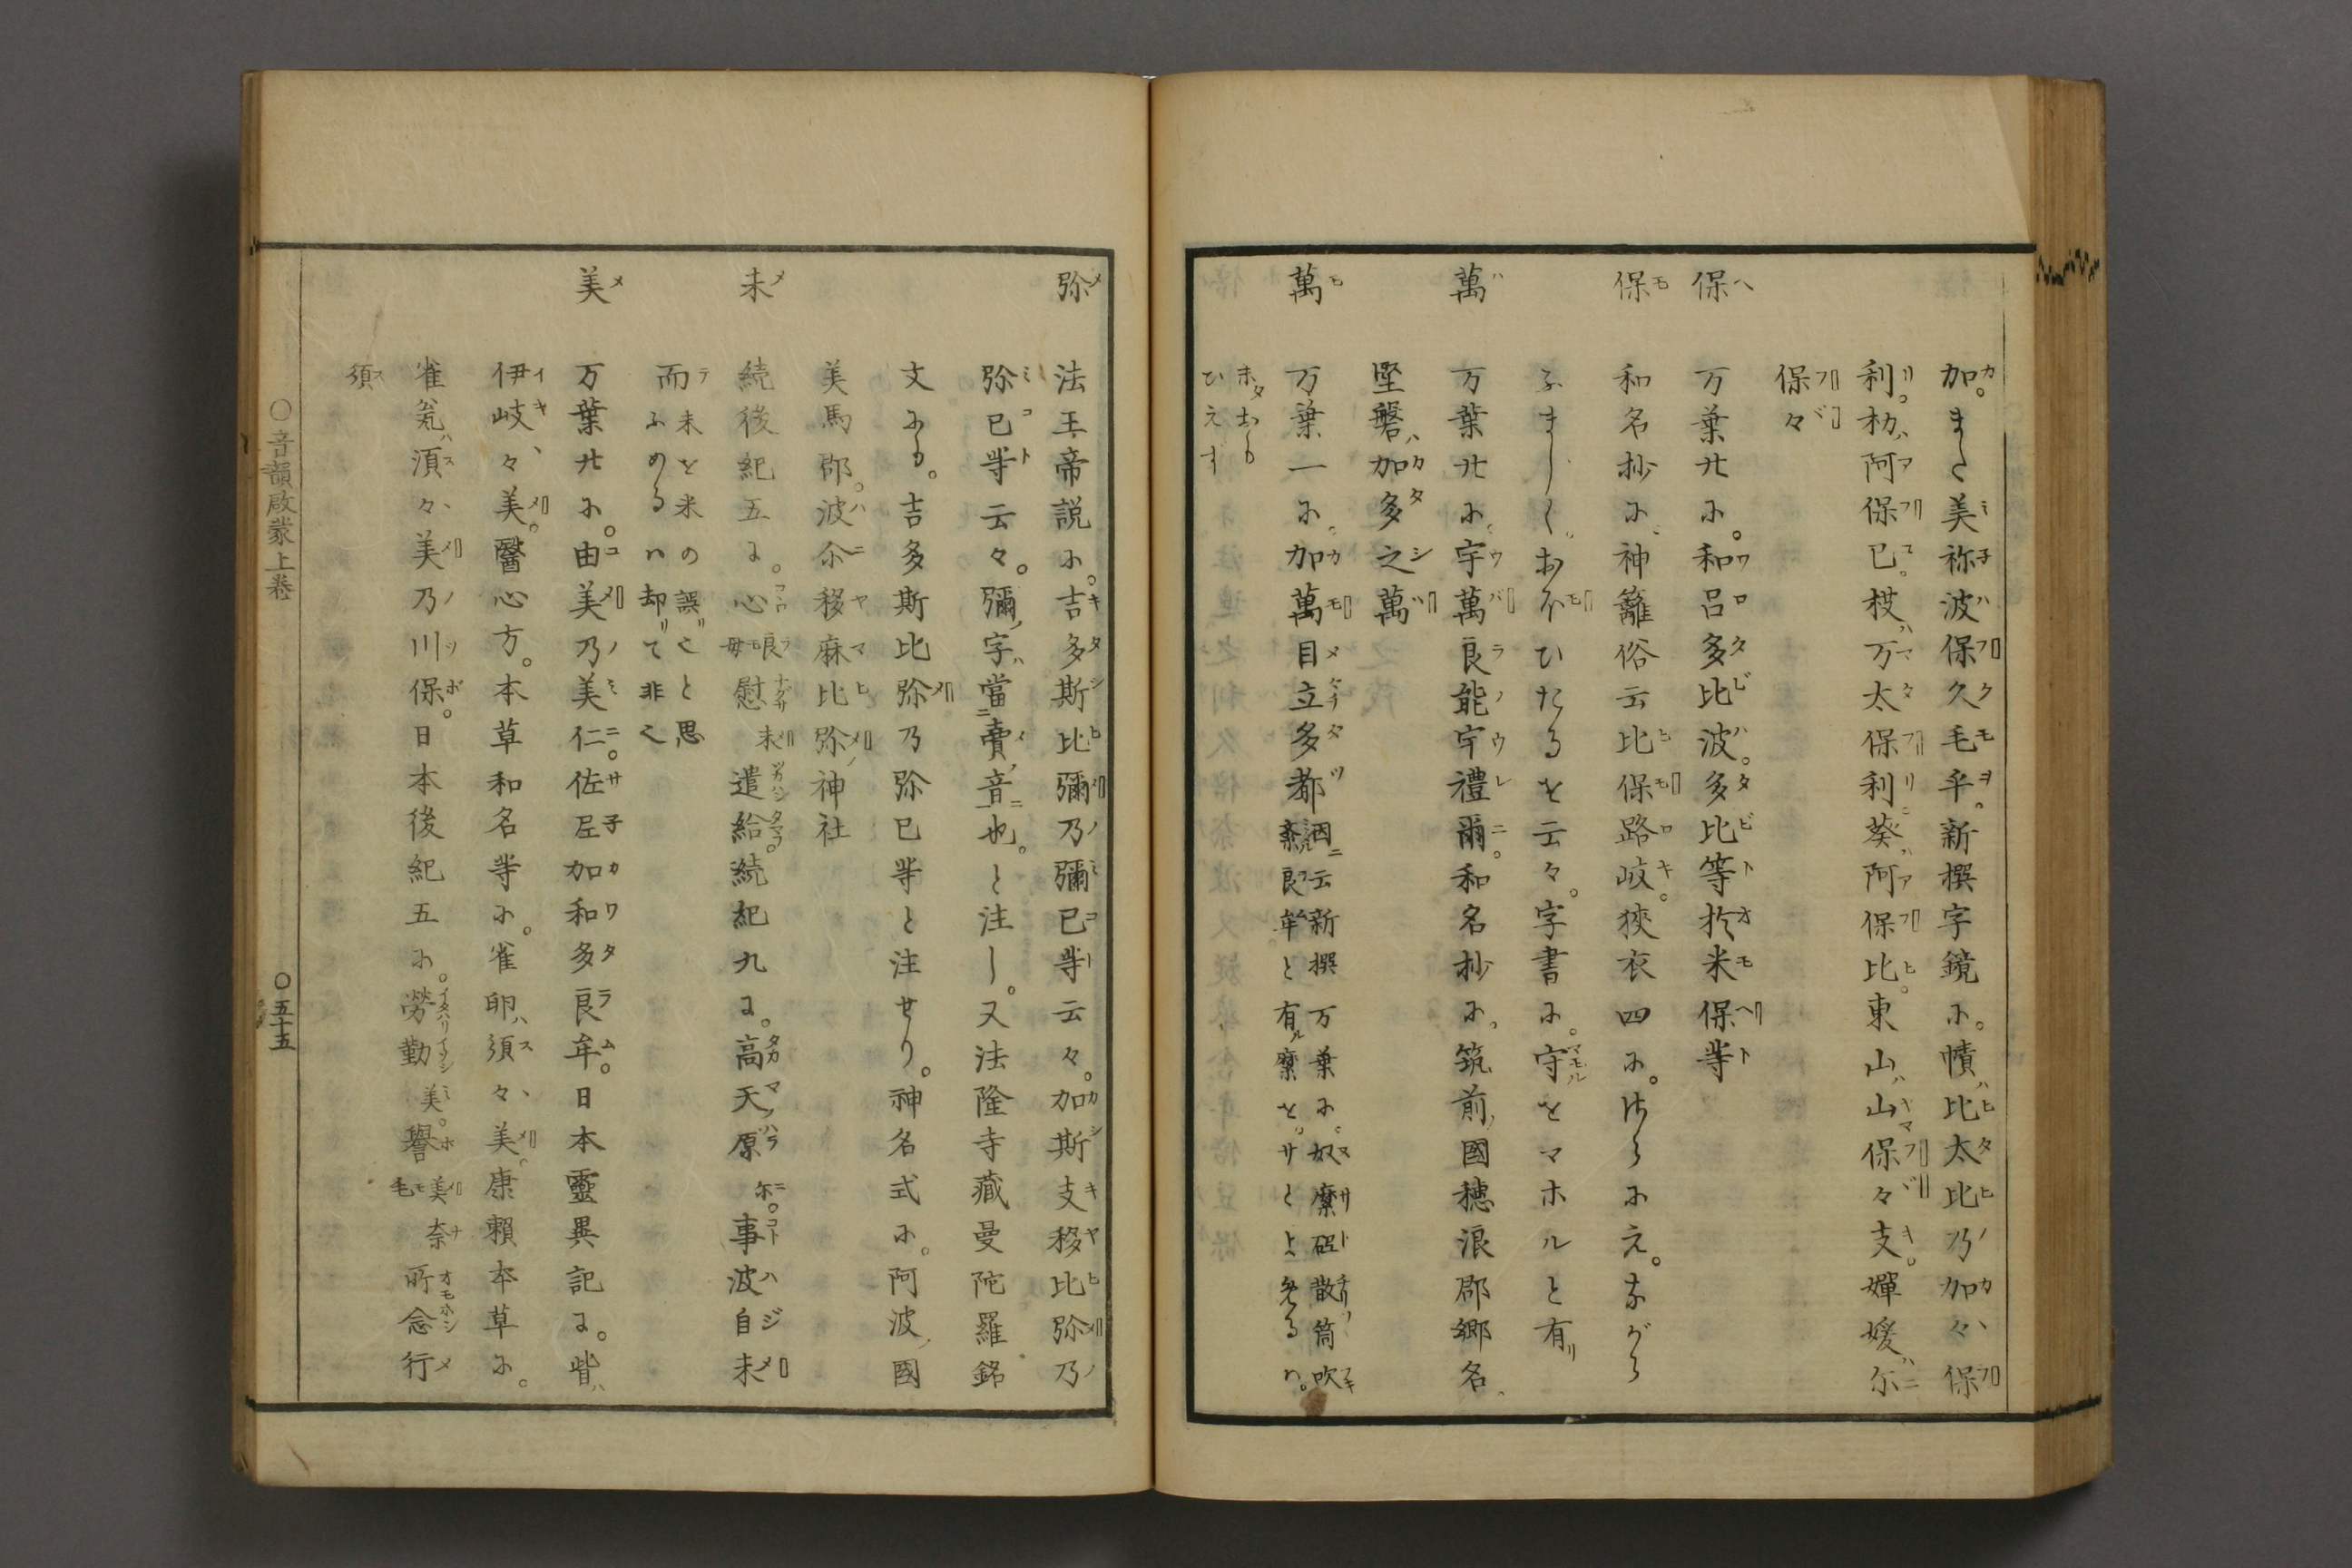 加。また美祢波保久毛乎。新撰字鏡に。幩ハ比太比乃加々保
利。枌ハ阿保已。杸ハ万太保利葵ハ阿保比。東山ハ山保々支。嬋媛ハ尓
保々
保 万葉廿に。和呂多比波。多比等於米保等
保 和名抄に神籬俗云比保路岐。狹衣四に。
云々。字書に。守をマホルと有
萬 万葉廿に。宇萬良能宇禮爾。和名抄に、筑前國穂浪郡郷名、
堅磐ハ加多之萬
萬 万葉一に。加萬目立多都 因ニ云新撰万葉に。
弥 法王帝説に。吉多斯比彌乃彌已等云々。加斯支移比弥乃
弥已等云々。彌ノ字ハ當賣ノ音也。と注し。又法隆寺藏曼陀羅銘
文にも。吉多斯比弥乃弥已等と注せり。神名式に。阿波國
美馬郡。波尒移麻比弥神社
未 続後紀五に。心母良慰未遣給。続紀九に。高天原尓。事波自未
而 未を米の誤りと思ふめるハ却りて非也
美 万葉廿に。由美乃美仁。佐尼加和多良牟。日本靈異記に。眥ハ
伊岐々美。醫心方。本草和名等に。雀卵ハ須々美。康頼本草に。
雀瓮ハ須々美乃川保。日本後紀五に。勞勤美。譽美毛奈所念行
須
○音韻啟蒙上巻 ○五十五